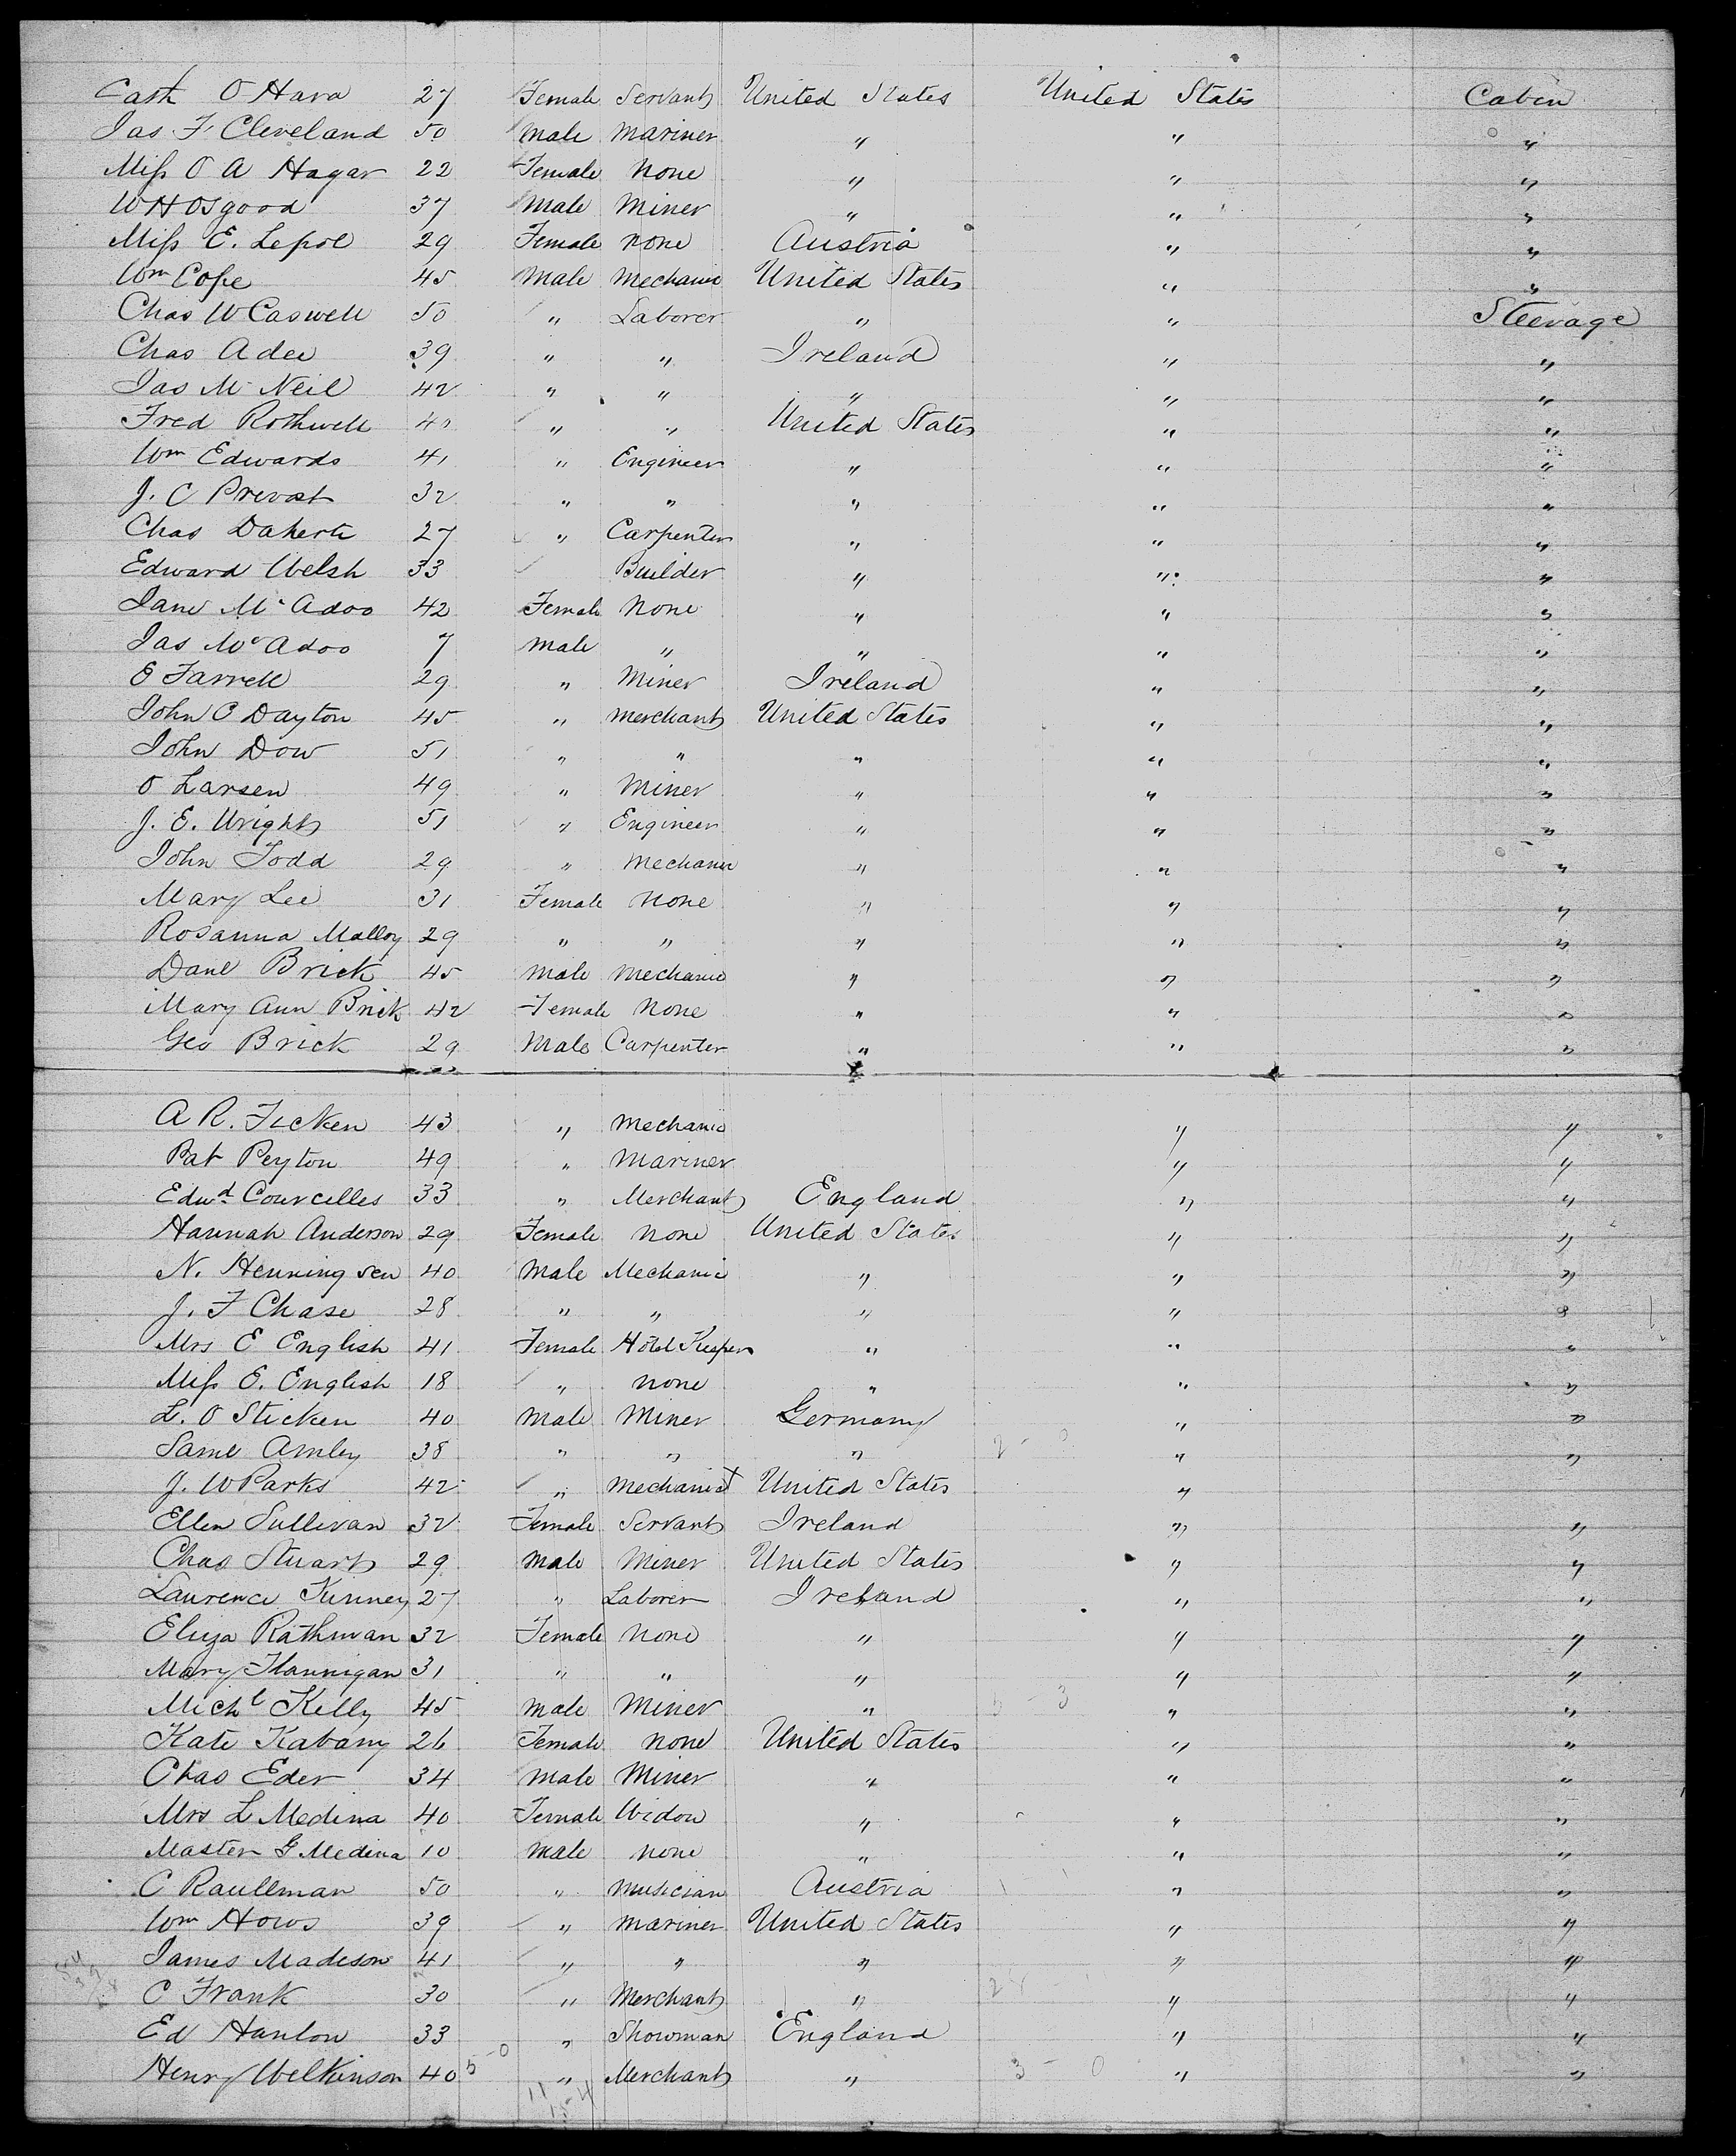 Cath O Hara 27 Female Servant United States United States Cabin
Jas F Cleveland 50 Male Mariner " " "
Miss O A Hagar 22 Female None " " "
W H Osgood 37 Male Miner " " "
Miss E. Lepol 29 Female None Austria " "
Wm Cope 45 Male Mechanic United States " "
Chas W Caswell 50 " Laborer " " Steerage
Chas Adee 39 " " Ireland " "
Jas Mc Neil 42 " " " " "
Fred Rothwell 40 " " United States " "
Wm Edwards 41 " Engineer " " "
J. C Prevost 32 " " " " "
Chas Daherte 27 " Carpenter " " "
Edward Welsh 33 Builder " " "
Jane Mc Adoo 42 Female None " " "
Jas Mc Adoo 7 Male " " " "
E Farrell 29 " Miner Ireland " "
John C Dayton 45 " Merchant United States " "
John Dow 51 " " " " "
O Larsen 49 " Miner " " "
J. E. Wright 51 " Engineer " " "
John Todd 29 " Mechanic " " "
Mary Lee 31 Female None " " "
Rosanna Malloy 29 " " " " "
Danl Brick 45 Male Mechanic " " "
Mary Ann Brick 42 Female None " " "
Geo Brick 29 Male Carpenter " " "
A R. Ficken 43 " Mechanic " "
Pat Peyton 49 " Mariner " "
Edwd Courcelles 33 " Merchant England " "
Hannah Anderson 29 Female None United States " "
N. Henningsen 40 Male Mechanic " " "
J. F Chase 28 " " " " "
Mrs E English 41 Female Hotel Keeper " " "
Miss E. English 18 " None " " "
L. O Sticken 40 Male Miner Germany " "
Saml Amley 38 " " " " "
J. W Parks 42 " Mechanic United States "
Ellen Sullivan 32 Female Servant Ireland " "
Chas Stuart 29 Male Miner United States " "
Laurence Kinney 27 " Laborer Ireland " "
Eliza Rathman 32 Female None " " "
Mary Flannigan 31 " " " " "
Michl Kelly 45 Male Miner " " "
Kate Kabany 26 Female None United States " "
Chas Eder 34 Male Miner " " "
Mrs L Medina 40 Female Widow " " "
Master G Medina 10 Male None " " "
C Raullman 50 " Musician Austria " "
Wm Hows 39 " Mariner United States " "
James Madison 41 " " " " "
C Frank 30 " Merchant " " "
Ed Hanlon 33 " Showman England " "
Henry Welkinson 40 " Merchant " " "